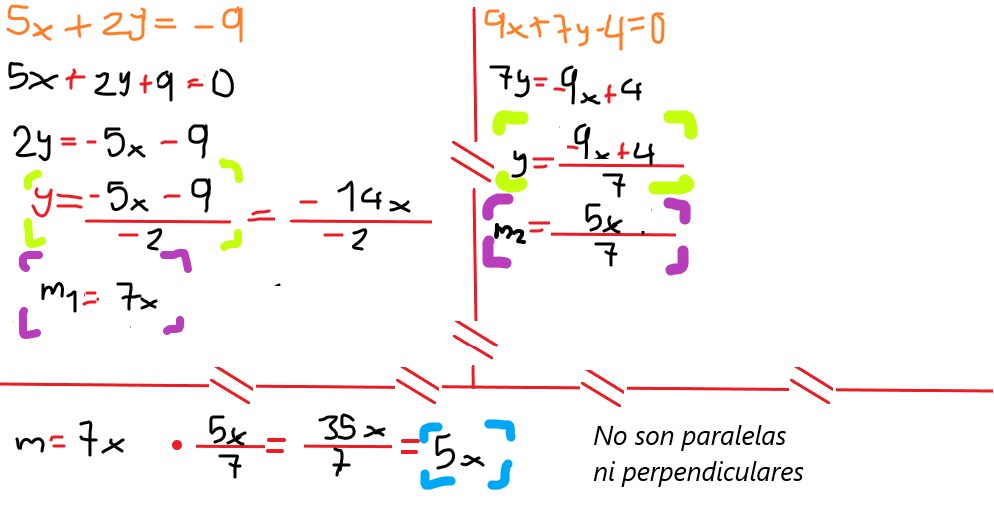 5x + 2y = -9
5x + 2y + 9 = 0
2y = -5x - 9
y = (-5x - 9) / -2 = -14x / -2
m1 = 7x
9x + 7y - 4 = 0
7y = -9x + 4
y = (-9x + 4) / 7
m2 = 5x / 7
m = 7x • 5x / 7 = 35x / 7 = 5x
No son paralelas
ni perpendiculares